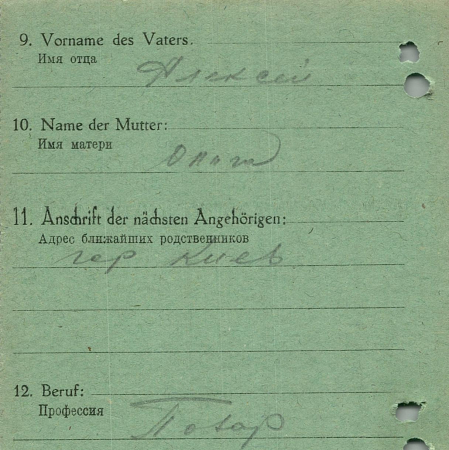 9. Vorname des Vaters.
Имя отца
Алексей
10. Name der Mutter:
Имя матери
11. Anschrift der nächsten Angehörigen:
Адрес ближайших родственников
гор Киев
12. Beruf:
Профессия
Повар